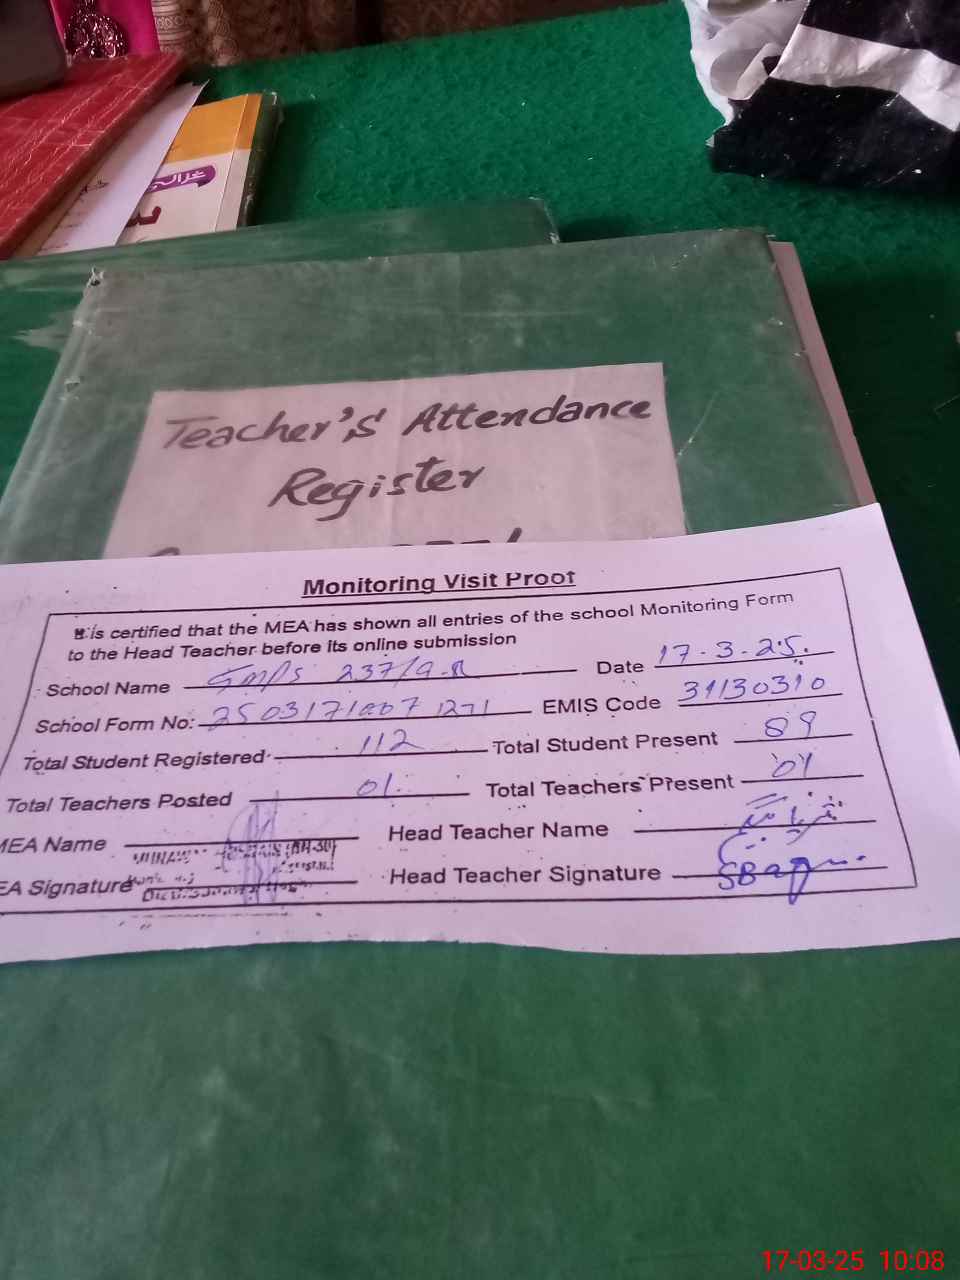 غزالی
Teacher's Attendance
Register
Monitoring Visit Proof
It is certified that the MEA has shown all entries of the school Monitoring Form
to the Head Teacher before its online submission
School Name GMPS 237/9-R Date 17-3-25.
School Form No: EMIS Code 31130310
Total Student Registered 112 Total Student Present 89
Total Teachers Posted 01 Total Teachers Present 01
MEA Name Head Teacher Name
EA Signature Head Teacher Signature
17-03-25 10:08